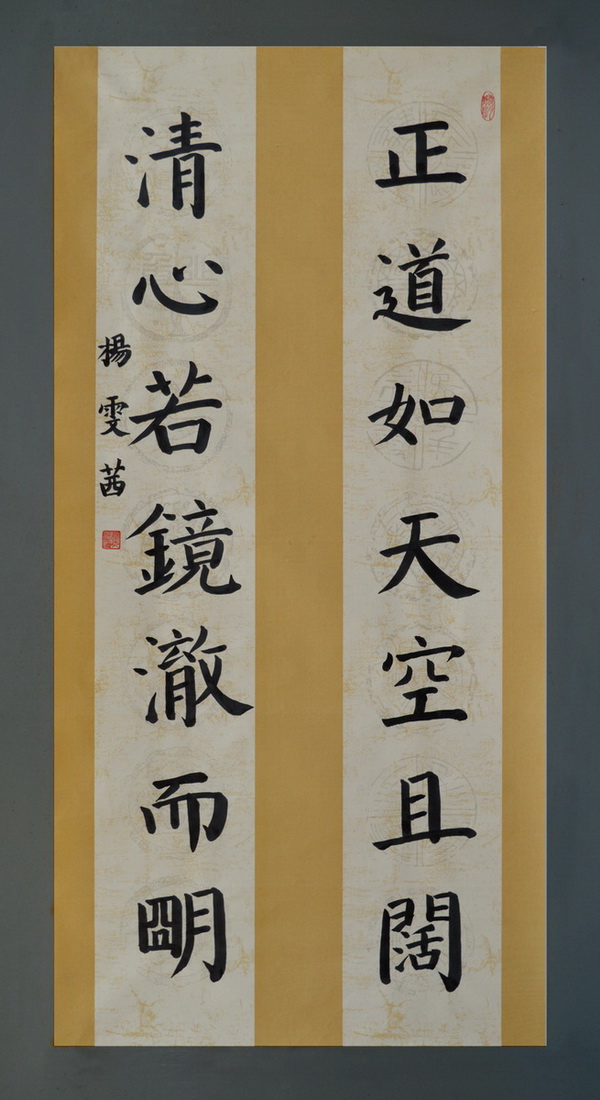 正道如天空且闊
清心若鏡澈而朙
楊雯茜